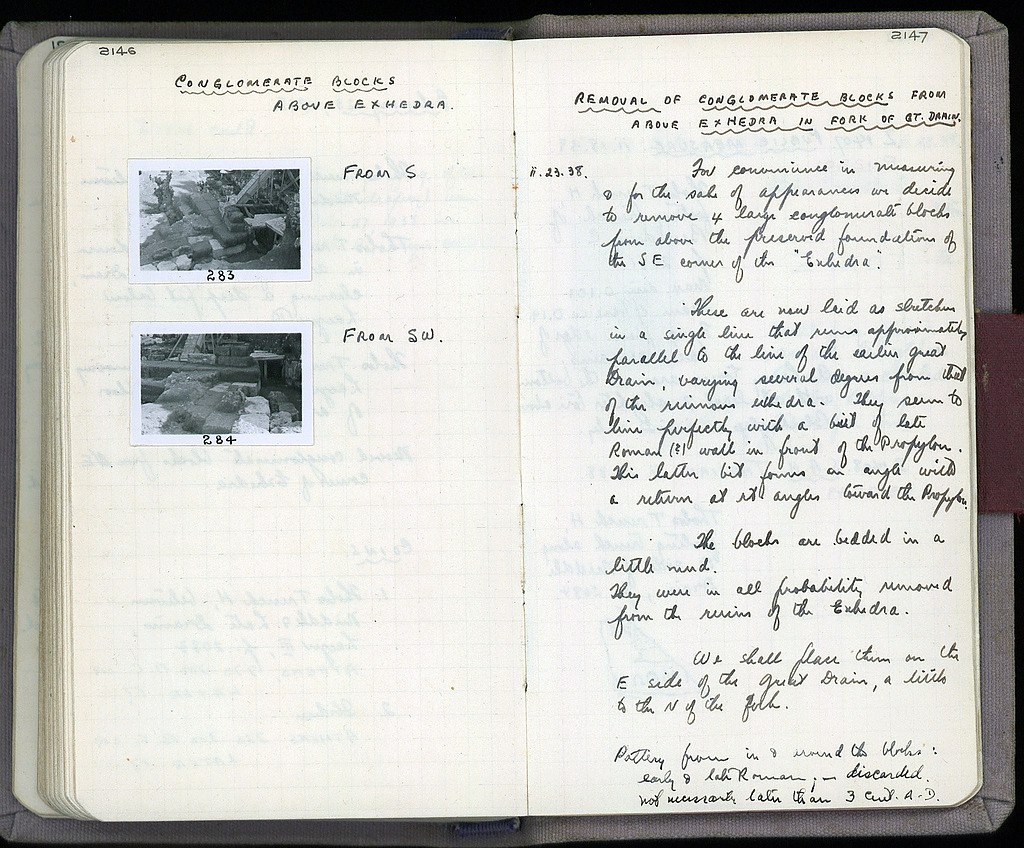 2146
CONGLOMERATE BLOCKS
ABOVE EXHEDRA.
FROM S
283
FROM SW.
284
2147
REMOVAL OF CONGLOMERATE BLOCKS FROM
ABOVE EXHEDRA IN FORK OF GT. DRAIN.
II.23.38.
For convenience in measuring
& for the sake of appearances we decide
to remove 4 large conglomerate blocks
from above the preserved foundations of
the SE corner of the "Exhedra".
These are now laid as stretchers
in a single line that runs approximately
parallel to the line of the earlier great
Drain, varying several degrees from that
of the ruinous exhedra. They seem to
line perfectly with a bit of late
Roman (?) wall in front of the Propylon.
This latter bit forms an angle with
a return at rt angles toward the Propylon.
The blocks are bedded in a
little mud.
They were in all probability removed
from the ruins of the Exhedra.
We shall place them on the
E side of the Great Drain, a little
to the N of the fork.
Pottery from in & around the blocks:
early & late Roman; – discarded.
not necessarily later than 3 cent. A.D.